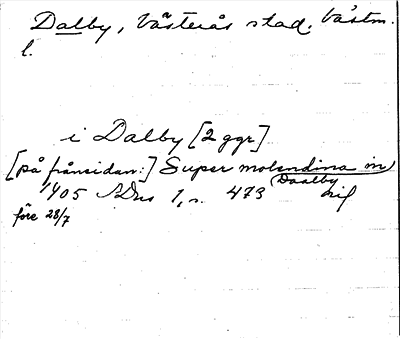 Dalby, Västerås stad. Västm.
l.
i Dalby [2 ggr]
[på frånsidan:] Super molendina in
Daalby
1405 SDns 1, s. 473
före 28/7